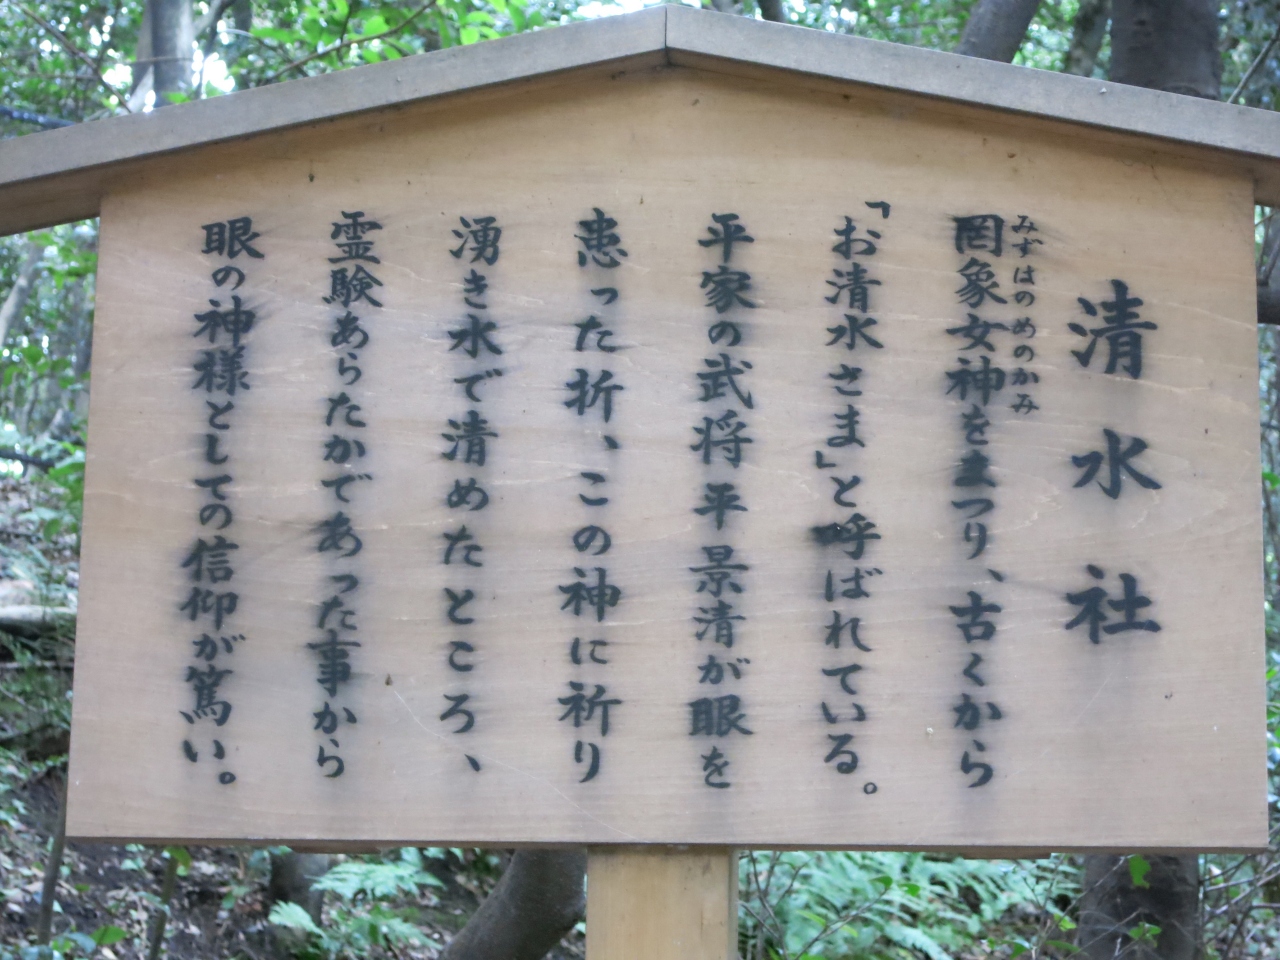 清水社
みずはのめのかみ
罔象女神をまつり、古くから
「お清水さま」と呼ばれている。
平家の武将平景清が眼を
患った折、この神に祈り
湧き水で清めたところ、
霊験あらたかであった事から
眼の神様としての信仰が篤い。